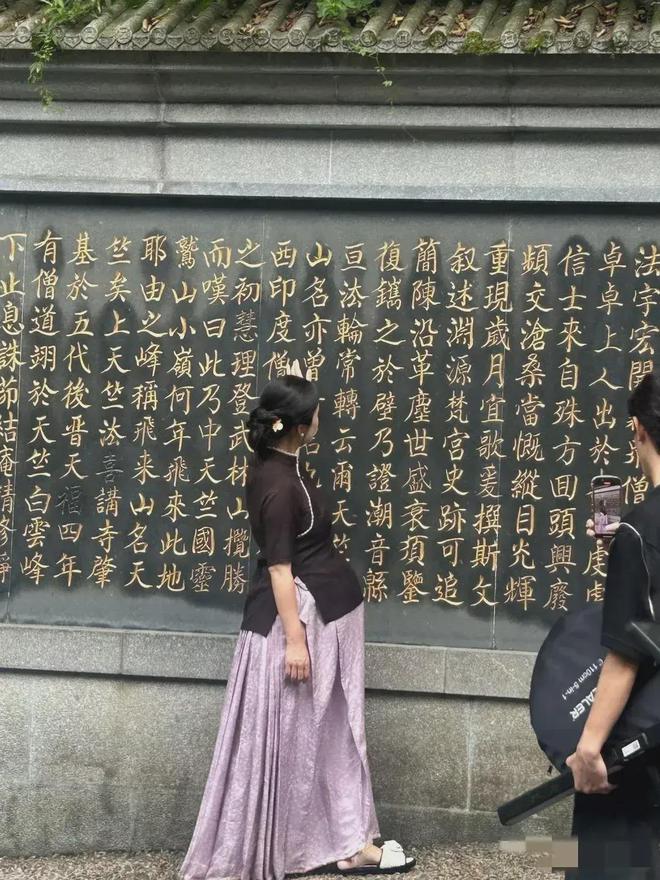 法宇宏開僧
卓卓上人出於虔虔
信士來自殊方回頭興廢
頻交滄桑當慨縱目光輝
重現歲月宜歌爰撰斯文
叙述淵源梵宮史跡可追
簡陳沿革塵世盛衰須鑒
復鐫之於壁乃證潮音緜
亘法輪常轉云爾天竺
山名亦
西印度僧
之初慧理登武林山攬勝
而嘆曰此乃中天竺國靈
鷲山小嶺何年飛來此地
耶由之峰稱飛來山名天
竺矣上天竺法喜講寺肇
基於五代後晉天福四年
有僧道翊於天竺白雲峰
下止息誅茆結庵精修靜
110cm 5-in-1